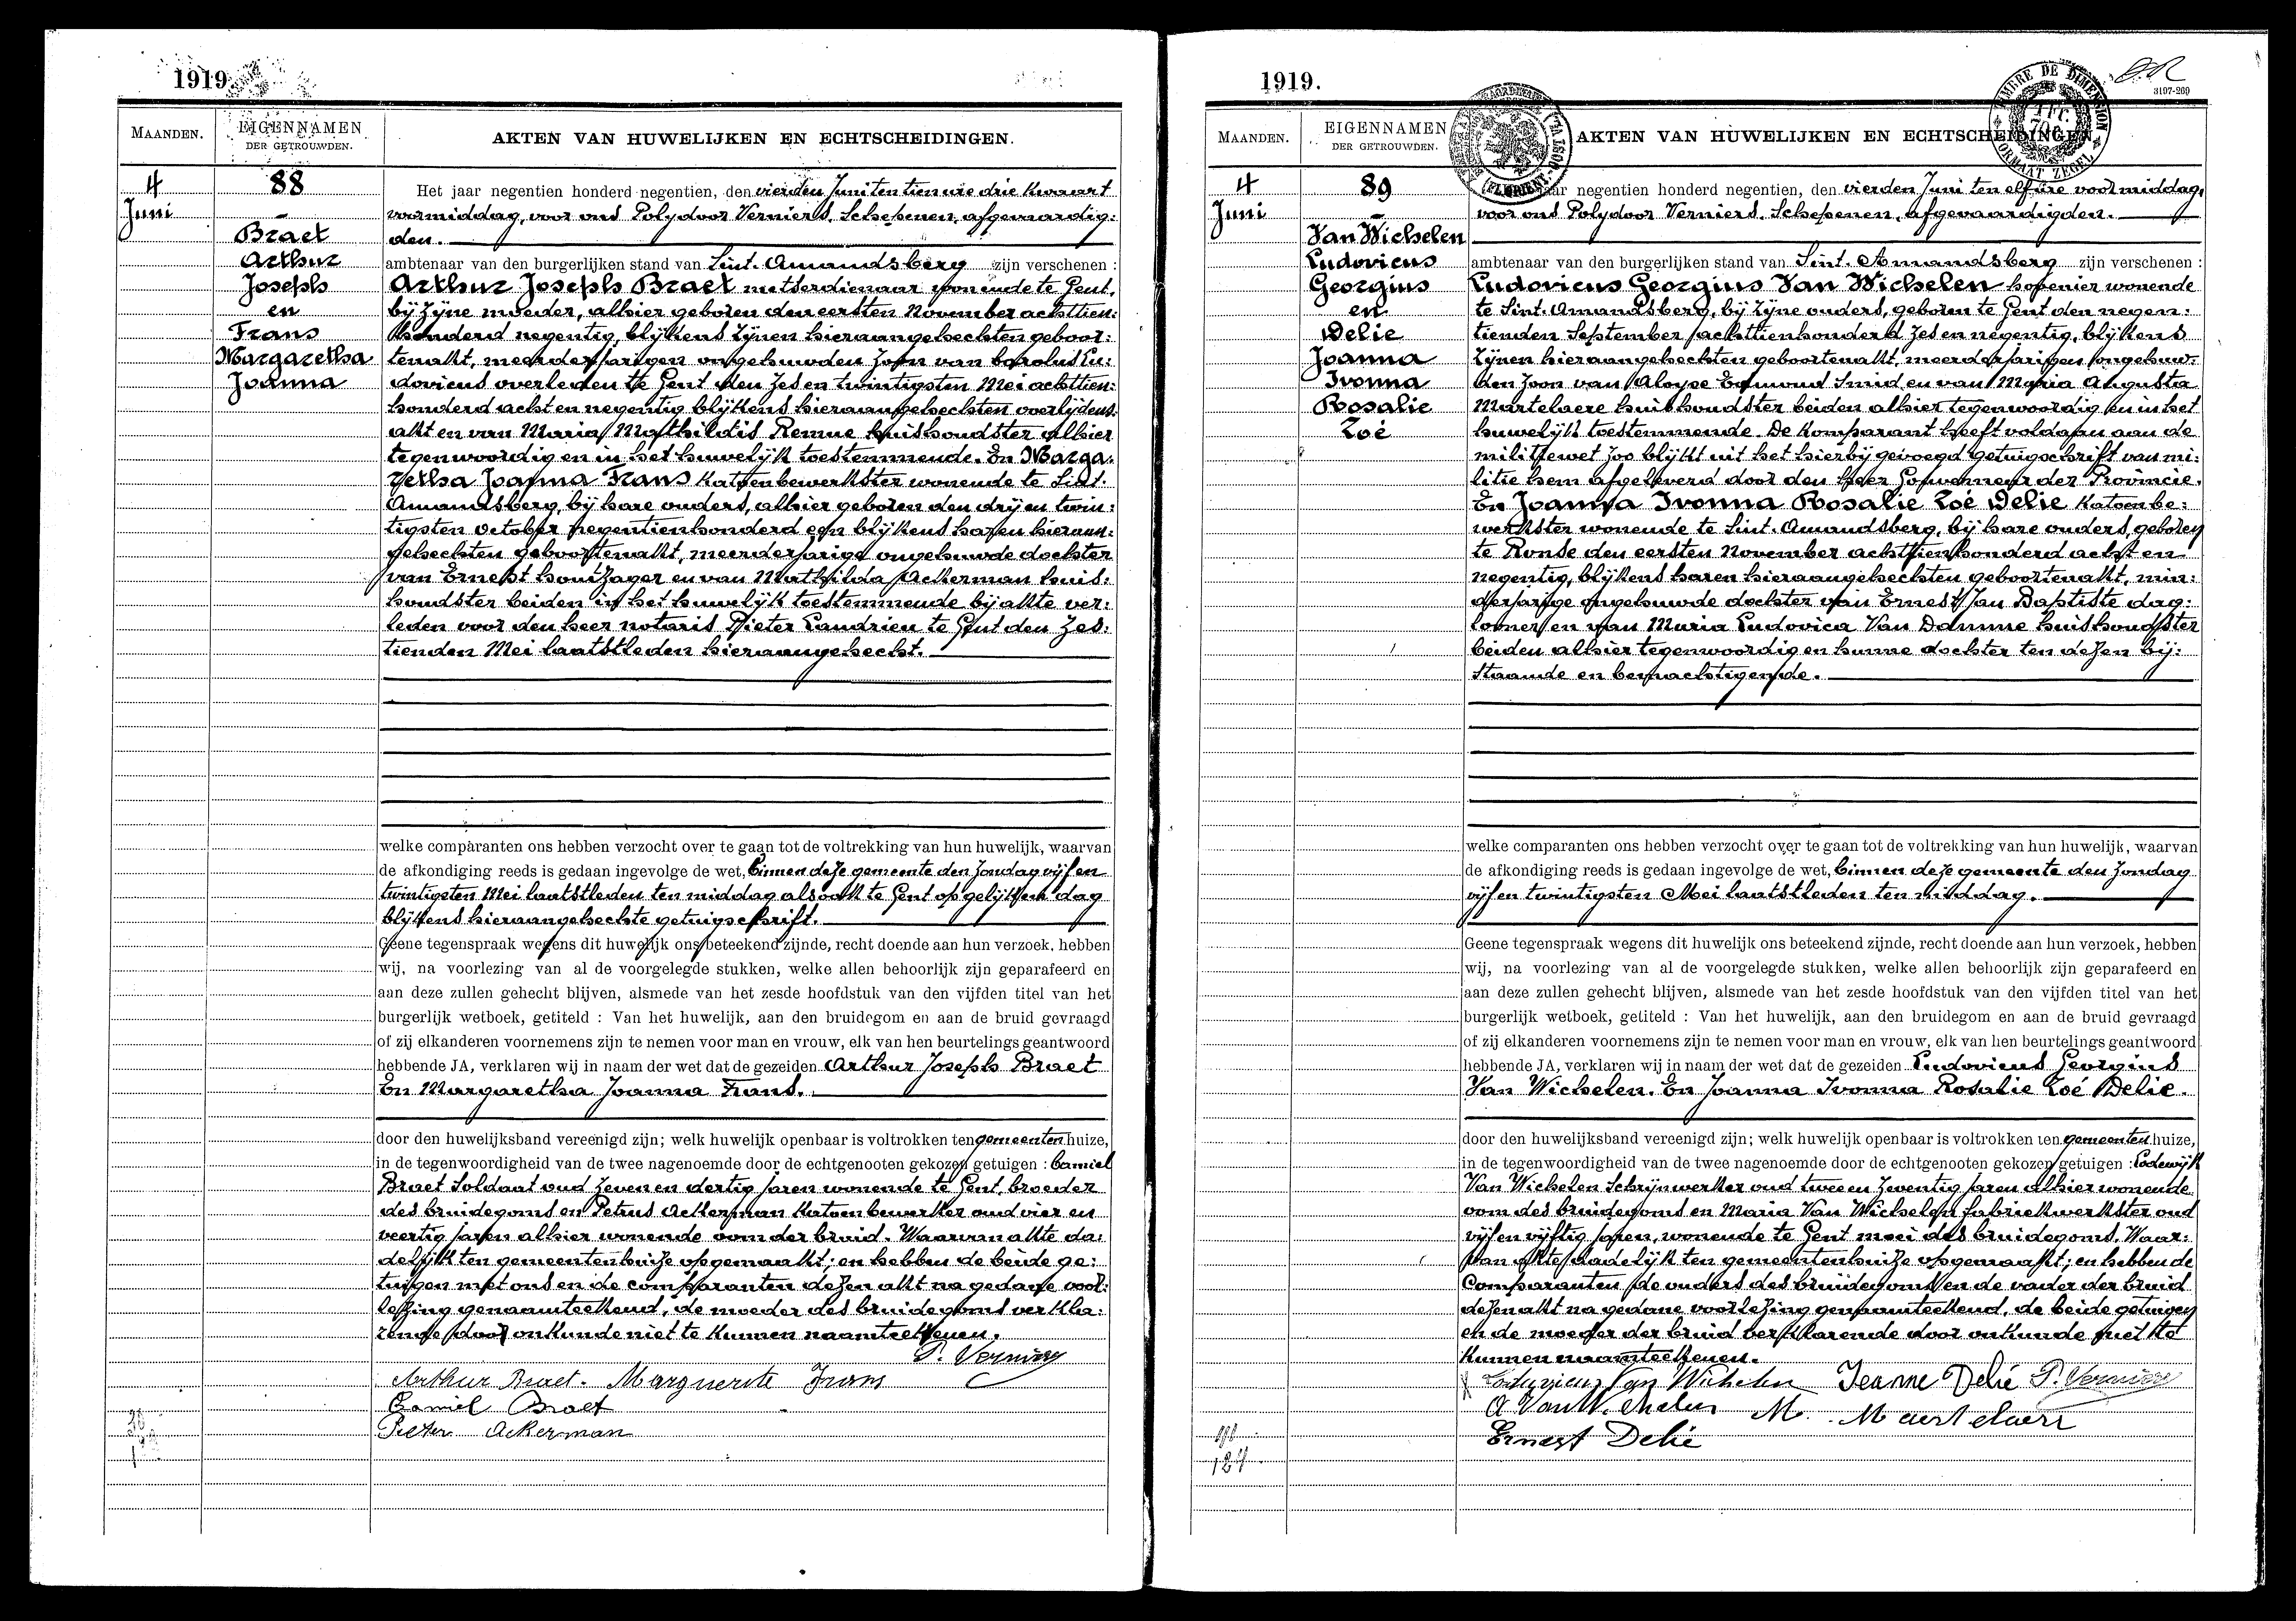 1919.
MAANDEN.
EIGENNAMEN
DER GETROUWDEN.
AKTEN VAN HUWELIJKEN EN ECHTSCHEIDINGEN.
4
Juni
88
Braet
Arthur
Joseph
en
Frans
Margaretha
Joanna
Het jaar negentien honderd negentien, den vierden Juni ten tien ure drie kwaart
voormiddag, voor ons Polydoor Verniers, Schepenen, afgevaardig:
den.
ambtenaar van den burgerlijken stand van Sint-Amandsberg zijn verschenen :
Arthur Joseph Braet metserdienaar wonende te Gent,
bij zijne moeder, alhier geboren den eersten November achttien:
honderd negentig, blijkens zijnen hieraangehechten geboor:
teakt, meerderjarigen ongehuwden zoon van Carolus Lu:
dovicus overleden te Gent den zes en twintigsten Mei achttien:
honderd acht en negentig blijkens hieraangehechten overlijdens:
akt en van Maria Mathildis Remue huishoudster alhier
tegenwoordig en in het huwelijk toestemmende. En Marga:
retha Joanna Frans katoenbewerkster wonende te Sint-
Amandsberg, bij hare ouders, alhier geboren den drij en twin:
tigsten October negentienhonderd een blijkens haren hieraan:
gehechten geboortenakt, meerderjarige ongehuwde dochter
van Ernest houtzager en van Mathilda Ackerman huis:
houdster beiden in het huwelijk toestemmende bij akte ver:
leden voor den heer notaris Pieter Landrien te Gent den zes:
tienden Mei laatstleden hieraangehecht.
welke comparanten ons hebben verzocht over te gaan tot de voltrekking van hun huwelijk, waarvan
de afkondiging reeds is gedaan ingevolge de wet, binnen deze gemeente den zondag vijf en
twintigsten Mei laatstleden ten middag alsook te Gent op gelijken dag
blijkens hieraangehechte getuigschrift.
Geene tegenspraak wegens dit huwelijk ons beteekend zijnde, recht doende aan hun verzoek, hebben
wij, na voorlezing van al de voorgelegde stukken, welke allen behoorlijk zijn geparafeerd en
aan deze zullen gehecht blijven, alsmede van het zesde hoofdstuk van den vijfden titel van het
burgerlijk wetboek, getiteld : Van het huwelijk, aan den bruidegom en aan de bruid gevraagd
of zij elkanderen voornemens zijn te nemen voor man en vrouw, elk van hen beurtelings geantwoord
hebbende JA, verklaren wij in naam der wet dat de gezeiden Arthur Joseph Braet
En Margaretha Joanna Frans.
door den huwelijksband vereenigd zijn; welk huwelijk openbaar is voltrokken ten gemeentenhuize,
in de tegenwoordigheid van de twee nagenoemde door de echtgenooten gekozen getuigen : Camiel
Braet Soldaat oud zeven en dertig jaren wonende te Gent, broeder
des bruidegoms en Petrus Ackerman katoenbewerker oud vier en
veertig jaren alhier wonende oom der bruid. Waarvan akte da:
delijk ten gemeentenhuize opgemaakt; en hebben de beide ge:
tuigen met ons en de comparanten dezen akt na gedane voor:
lezing genaamteekend, de moeder des bruidegoms verkla:
rende door onkunde niet te kunnen naamteekenen.
P. Verniers
Arthur Braet. Marguerite Frans
Camiel Braet
Pieter Ackerman
1919.
3197-269
MAANDEN.
EIGENNAMEN
DER GETROUWDEN.
AKTEN VAN HUWELIJKEN EN ECHTSCHEIDINGEN.
4
Juni
89
Van Wichelen
Ludovicus
Georgius
en
Delie
Joanna
Ivonna
Rosalie
Zoé
jaar negentien honderd negentien, den vierden Juni ten elf ure voormiddag,
voor ons Polydoor Verniers, Schepenen, afgevaardigden.
ambtenaar van den burgerlijken stand van Sint-Amandsberg zijn verschenen :
Ludovicus Georgius Van Wichelen hovenier wonende
te Sint-Amandsberg, bij zijne ouders, geboren te Gent den negen:
tienden September achttienhonderd zes en negentig, blijkens
zijnen hieraangehechten geboortenakt, meerderjarigen ongehuw:
den zoon van Aloyse Edmond Smid en van Maria Augusta
Martelaere huishoudster beiden alhier tegenwoordig en in het
huwelijk toestemmende. De komparant heeft voldaan aan de
militiewet zoo blijkt uit het hierbij gevoegd getuigschrift van mi:
litie hem afgeleverd door den heer Gouverneur der Provincie.
En Joanna Ivonna Rosalie Zoé Delie katoenbe:
werkster wonende te Sint-Amandsberg, bij hare ouders, geboren
te Ronse den eersten November achttienhonderd acht en
negentig, blijkens haren hieraangehechten geboortenakt, min:
derjarige ongehuwde dochter van Ernest Jan Baptiste dag:
looner en van Maria Ludovica Van Damme huishoudster
beiden alhier tegenwoordig en hunne dochter ten dezen bij:
staande en bemachtigende.
welke comparanten ons hebben verzocht over te gaan tot de voltrekking van hun huwelijk, waarvan
de afkondiging reeds is gedaan ingevolge de wet, binnen deze gemeente den zondag
vijf en twintigsten Mei laatstleden ten middag.
Geene tegenspraak wegens dit huwelijk ons beteekend zijnde, recht doende aan hun verzoek, hebben
wij, na voorlezing van al de voorgelegde stukken, welke allen behoorlijk zijn geparafeerd en
aan deze zullen gehecht blijven, alsmede van het zesde hoofdstuk van den vijfden titel van het
burgerlijk wetboek, getiteld : Van het huwelijk, aan den bruidegom en aan de bruid gevraagd
of zij elkanderen voornemens zijn te nemen voor man en vrouw, elk van hen beurtelings geantwoord
hebbende JA, verklaren wij in naam der wet dat de gezeiden Ludovicus Georgius
Van Wichelen. En Joanna Ivonna Rosalie Zoé Delie.
door den huwelijksband vereenigd zijn; welk huwelijk openbaar is voltrokken ten gemeentenhuize,
in de tegenwoordigheid van de twee nagenoemde door de echtgenooten gekozen getuigen : Lodewijk
Van Wichelen Schrijnwerker oud twee en zeventig jaren alhier wonende
oom des bruidegoms en Maria Van Wichelen fabriekwerkster oud
vijf en vijftig jaren, wonende te Gent moei des bruidegoms. Waar:
van akte dadelijk ten gemeentenhuize opgemaakt; en hebben de
Comparanten de ouders des bruidegoms en de vader der bruid
dezen akt na gedane voorlezing genaamteekend, de beide getuigen
en de moeder der bruid verklarende door onkunde niet te
kunnen naamteekenen.
Ludovicus Van Wichelen Jeanne Delié P. Verniers
A Van Wichelen M. Martelaere
Ernest Delié